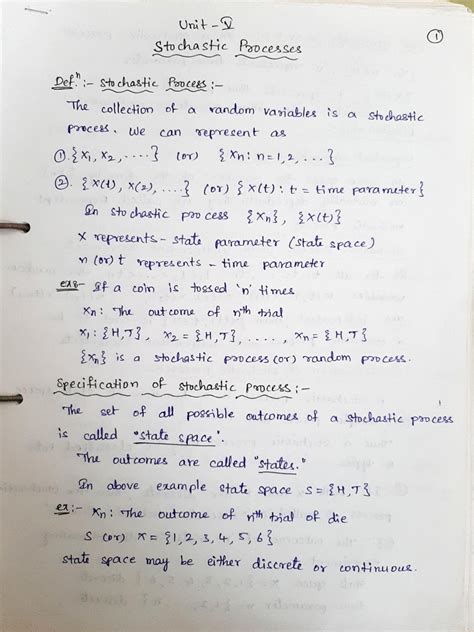 Unit - V
①
Stochastic Processes
Defⁿ:- Stochastic Process:-
The collection of a random variables is a stochastic
process. We can represent as
①. {X1, X2, ....} (or) {Xn: n=1,2, ...}
②. {X(t), X(2), ....} (or) {X(t): t = time parameter}
In stochastic process {Xn}, {X(t)}
X represents - state parameter (state space)
n (or) t represents - time parameter
ex:- If a coin is tossed 'n' times
Xn: The outcome of nth trial
X1: {H,T}, X2 = {H,T}, ...., Xn = {H,T}
{Xn} is a stochastic process (or) random process.
Specification of stochastic process:-
The set of all possible outcomes of a stochastic process
is called "state space".
The outcomes are called "states."
In above example state space S = {H,T}
ex:- Xn: The outcome of nth trial of die
S (or) X = {1, 2, 3, 4, 5, 6}
state space may be either discrete or continuous.